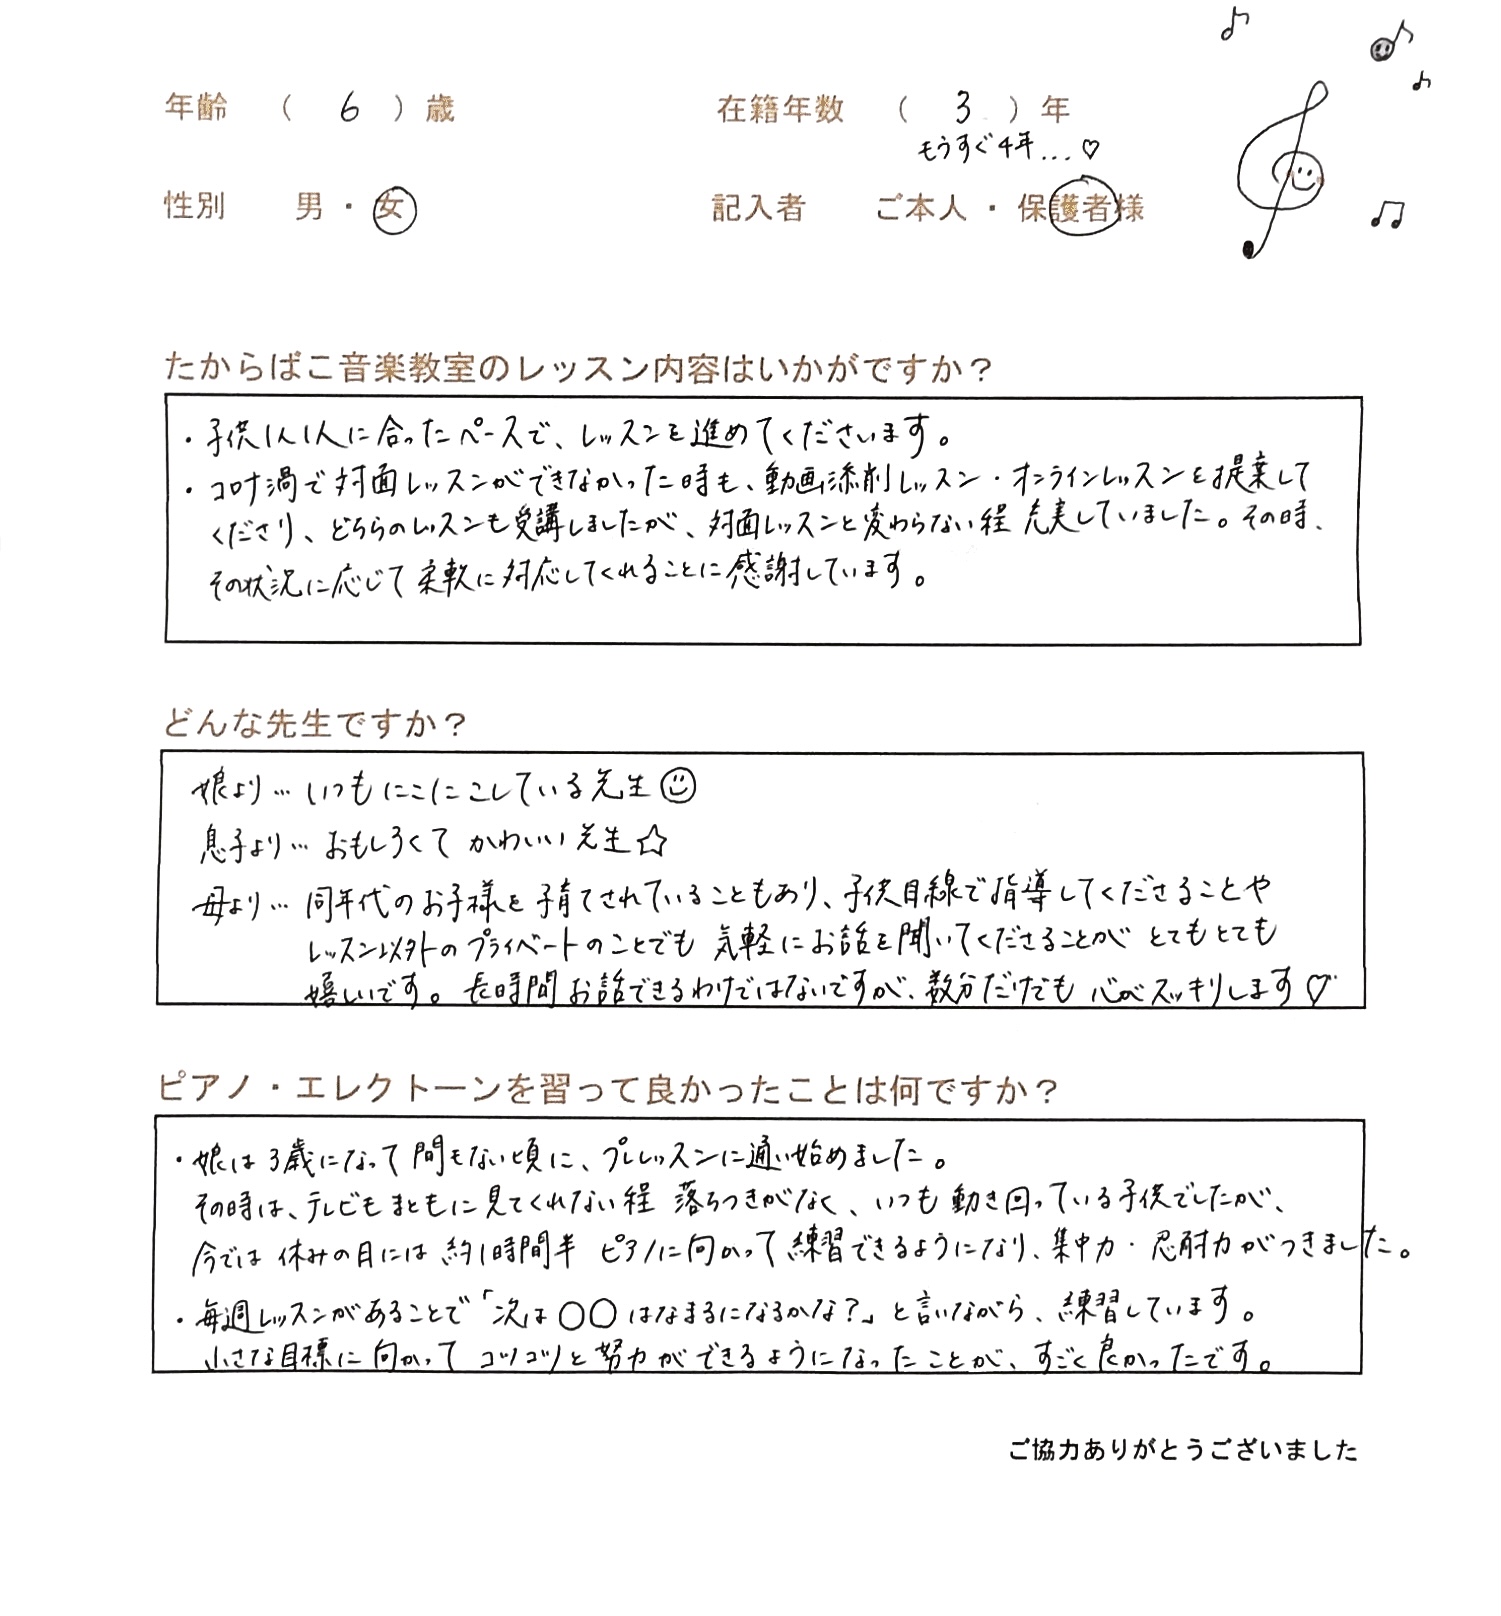 年齢 （ 6 ）歳
在籍年数 （ 3 ）年
もうすぐ4年...♡
性別 男・女
記入者 ご本人・保護者様
たからばこ音楽教室のレッスン内容はいかがですか？
・子供1人1人に合ったペースで、レッスンを進めてくださいます。
・コロナ渦で対面レッスンができなかった時も、動画添削レッスン・オンラインレッスンを提案して
くださり、どちらのレッスンも受講しましたが、対面レッスンと変わらない程 充実していました。その時、
その状況に応じて柔軟に対応してくれることに感謝しています。
どんな先生ですか？
娘より… いつもにこにこしている先生☺
息子より… おもしろくて かわいい先生☆
母より… 同年代のお子様を子育てされていることもあり、子供目線で指導してくださることや
レッスン以外のプライベートのことでも 気軽にお話を聞いてくださることが とてもとても
嬉しいです。長時間お話できるわけではないですが、数分だけでも 心がスッキリします♡
ピアノ・エレクトーンを習って良かったことは何ですか？
・娘は3歳になって間もない頃に、プレレッスンに通い始めました。
その時は、テレビもまともに見てくれない程 落ちつきがなく、いつも動き回っている子供でしたが、
今では 休みの日には 約1時間半 ピアノに向かって練習できるようになり、集中力・忍耐力がつきました。
・毎週レッスンがあることで「次は○○はなまるになるかな？」と言いながら、練習しています。
小さな目標に向かって コツコツと努力ができるようになったことが、すごく良かったです。
ご協力ありがとうございました